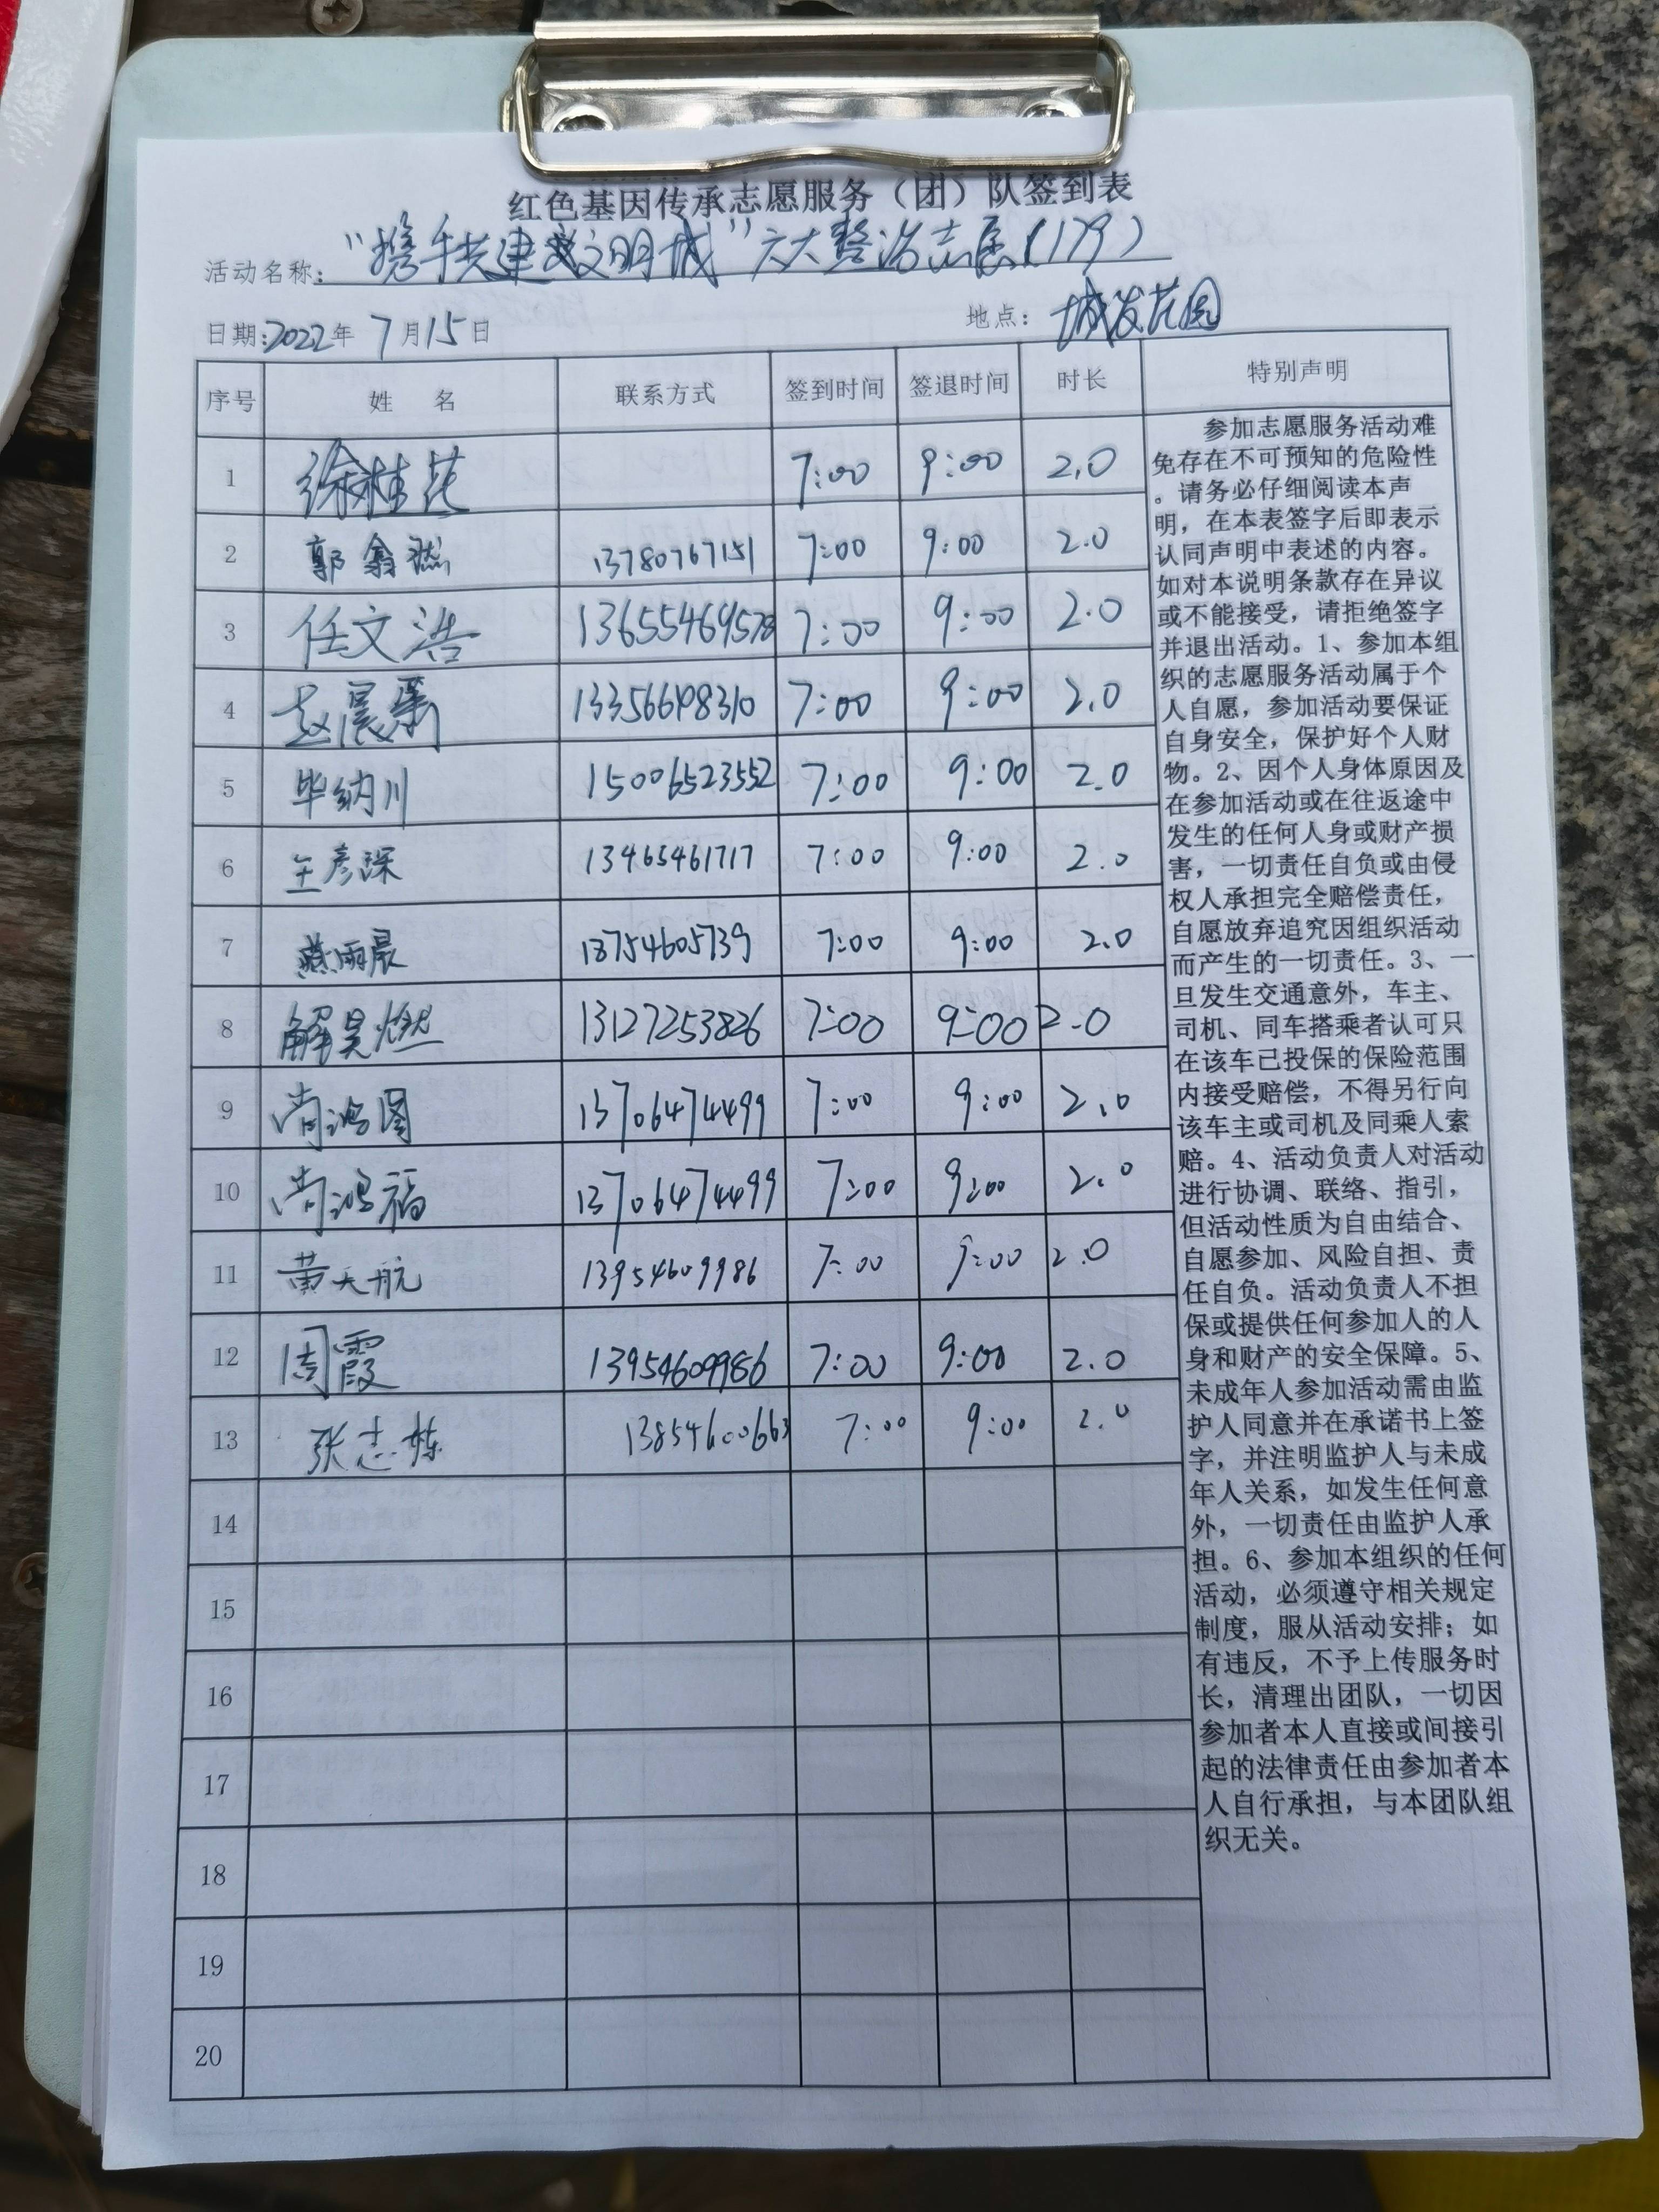 红色基因传承志愿服务（团）队签到表
活动名称：“携手共建文明城”六大整治志愿（179）
日期：2022年 7月15日 地点：城发花园
序号 姓 名 联系方式 签到时间 签退时间 时长 特别声明
1 徐桂花 7:00 9:00 2.0
2 郭鑫燃 13780767151 7:00 9:00 2.0
3 任文浩 13655469578 7:00 9:00 2.0
4 赵晨 7:00 9:00 2.0
5 毕纳川 15006523552 7:00 9:00 2.0
6 王彦深 13465461717 7:00 9:00 2.0
7 燕雨晨 18754605739 7:00 9:00 2.0
8 解昊燃 13127253826 7:00 9:00 2.0
9 尚鸿图 13706474499 7:00 9:00 2.0
10 尚鸿福 13706474499 7:00 9:00 2.0
11 黄天航 13954609986 7:00 9:00 2.0
12 周霞 13954609986 7:00 9:00 2.0
13 张志栋 13854600663 7:00 9:00 2.0
14
15
16
17
18
19
20
参加志愿服务活动难
免存在不可预知的危险性
。请务必仔细阅读本声
明，在本表签字后即表示
认同声明中表述的内容。
如对本说明条款存在异议
或不能接受，请拒绝签字
并退出活动。1、参加本组
织的志愿服务活动属于个
人自愿，参加活动要保证
自身安全，保护好个人财
物。2、因个人身体原因及
在参加活动或在往返途中
发生的任何人身或财产损
害，一切责任自负或由侵
权人承担完全赔偿责任，
自愿放弃追究因组织活动
而产生的一切责任。3、一
旦发生交通意外，车主、
司机、同车搭乘者认可只
在该车已投保的保险范围
内接受赔偿，不得另行向
该车主或司机及同乘人索
赔。4、活动负责人对活动
进行协调、联络、指引，
但活动性质为自由结合、
自愿参加、风险自担、责
任自负。活动负责人不担
保或提供任何参加人的人
身和财产的安全保障。5、
未成年人参加活动需由监
护人同意并在承诺书上签
字，并注明监护人与未成
年人关系，如发生任何意
外，一切责任由监护人承
担。6、参加本组织的任何
活动，必须遵守相关规定
制度，服从活动安排；如
有违反，不予上传服务时
长，清理出团队，一切因
参加者本人直接或间接引
起的法律责任由参加者本
人自行承担，与本团队组
织无关。